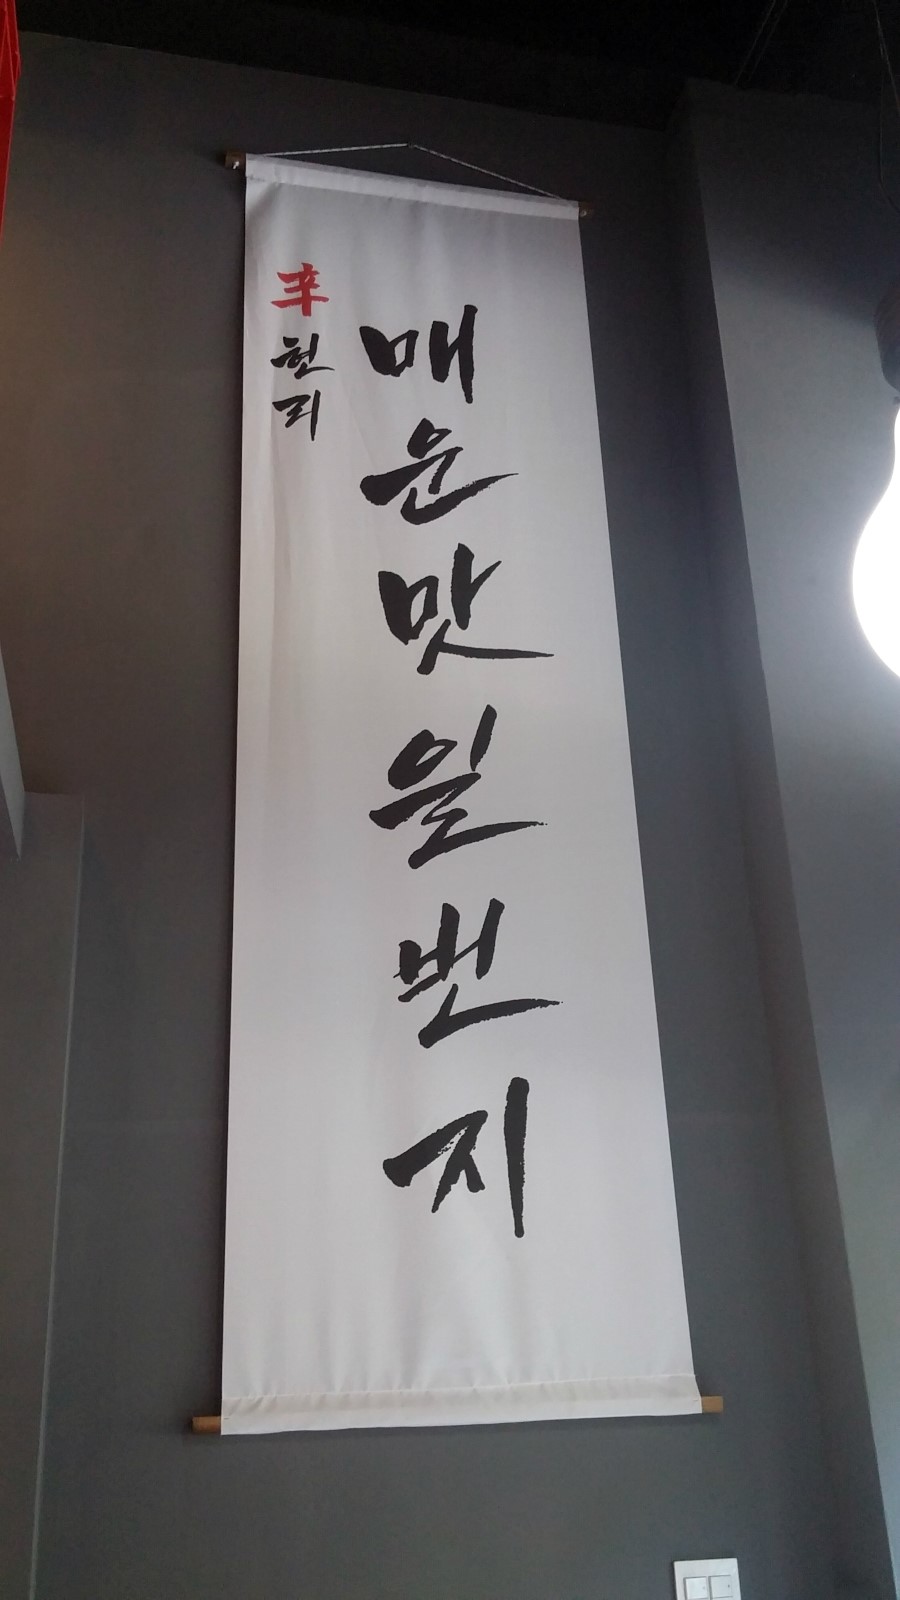 매운맛일번지
辛헌리